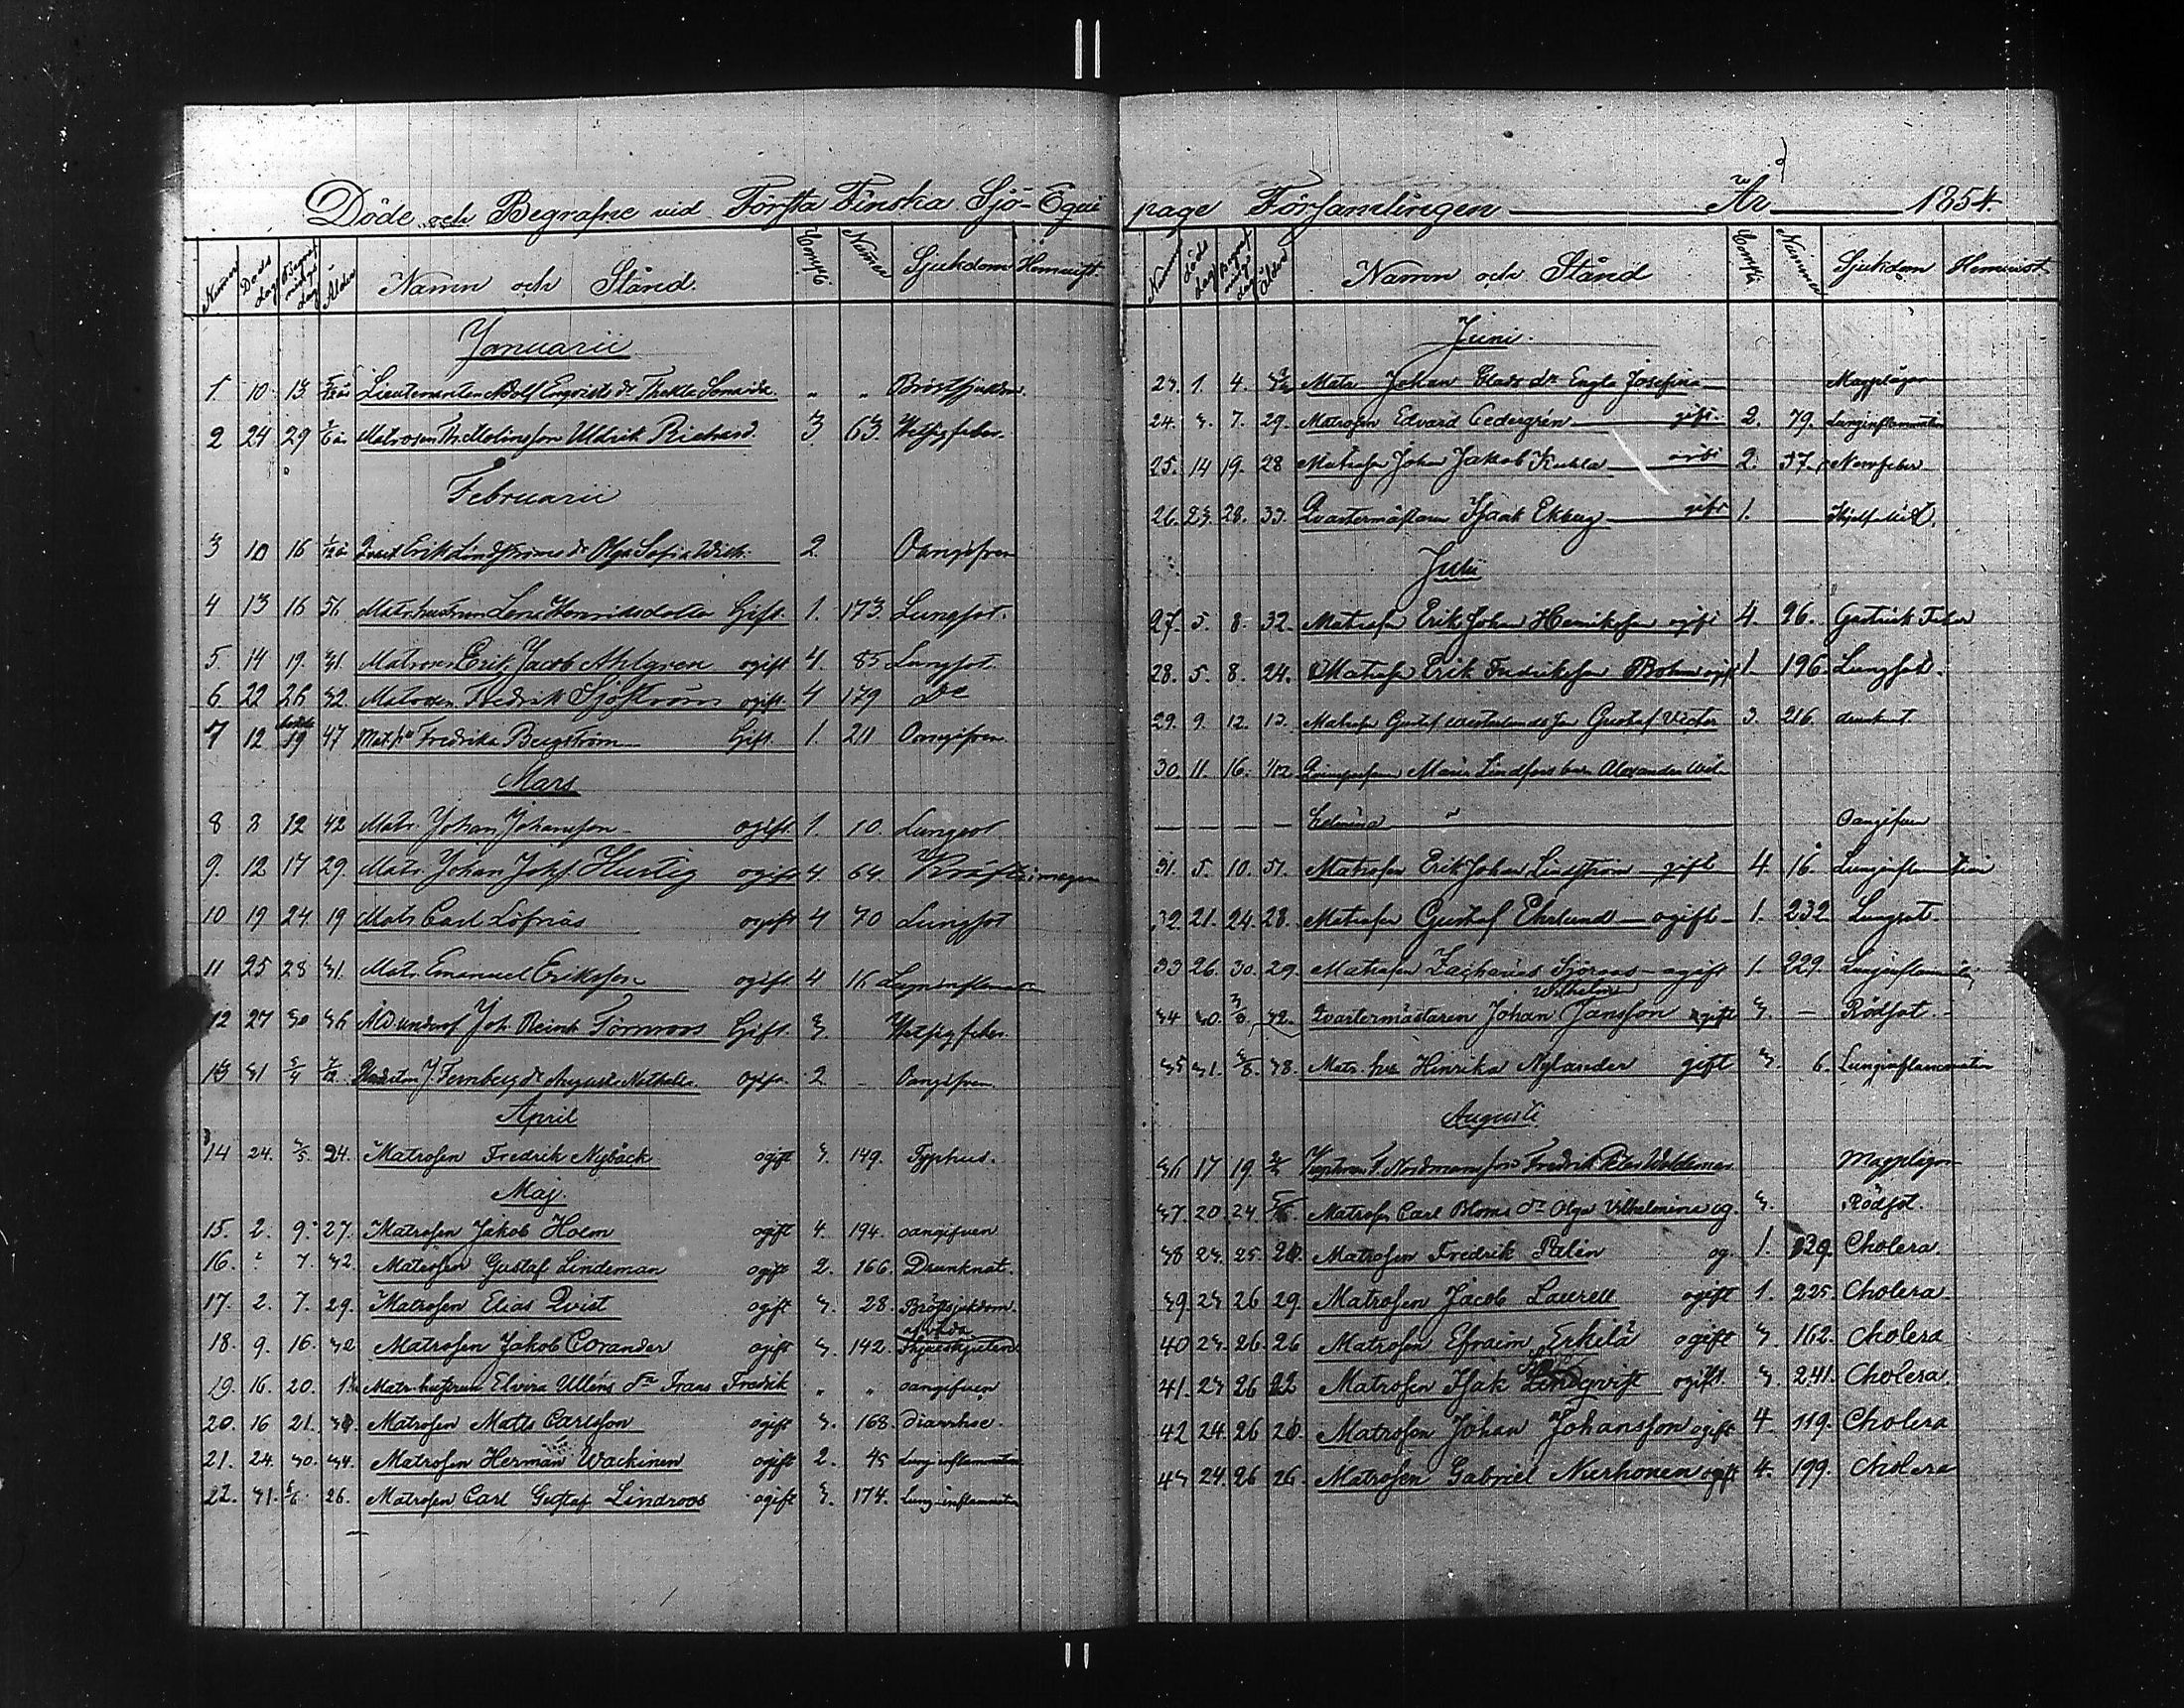 Döde och Begrafne vid Första Finska Sjö-Equi page Församlingen År 1854.
Numer Döds dag Begraf nings dag Ålder Namn och Stånd. Comp: Numer Sjukdom Hemvist
Januarii
1 10 13 Lieutenanten Adolf Engqvists dr Thekla „ „ Bröstsjukdom.
2 24 29 Matrosen Uldrik Richard 3 63 Hetsig feber.
Februarii
3 10 16 Erik Lindströms dr Olga Sofia Wilh. 2 Oangifven
4 13 16 Matr. hustrun Lena Henriksdotter Gift. 1. 173 Lungsot.
5 14 19. 31 Matrosen Erik Jacob Ahlgren ogift 4 85 Lungsot.
6 22 26 32. Matrosen Fredrik Sjöström ogift. 4 179 Do
7 12 19 47 Fredrika Bergström Gift. 1. 211 Oangifven.
Mars
8 8 12 42 Matr. Johan Johansson ogift. 1. 10. Lungsot
9. 12 17 29. Matr. Johan Hurtig ogift 4. 64. Kräfta i magen
10 19 24 19 Matr Carl Löfnäs ogift 4 70 Lungsot
11 25 28 31. Matr. Emanuel Eriksson ogift. 4 16 Lunginflammation
12 27 30 36 Joh. Reinh Törnroos Gift. 3. Hetsig feber.
13 31 5/4 7/12 J. Fernberg dr Augusta Nathalia Ogift. 2 - Oangifven
April
14 24. 3/5. 24. Matrosen Fredrik Nybäck ogift 3. 149. Typhus.
Maj.
15. 2. 9. 27. Matrosen Jakob Holm ogift 4. 194. oangifven
16. 7. 32. Matrosen Gustaf Lindeman ogift 2. 166. Drunknat.
17. 2. 7. 29. Matrosen Elias Qvist ogift 3. 28. Bröstsjukdom.
18. 9. 16. 32 Matrosen Jakob Corander ogift 3. 142.
19. 16. 20. Matr. hustrun Elvira Ulléns Frans Fredrik „ „ oangifven
20. 16 21. Matrosen Matts Carlsson ogift 3. 168. diarrhoe.
21. 24. 30. 34. Matrosen Herman Wackinen ogift 2. 45 Lunginflammation
22. 31. 26. Matrosen Carl Gustaf Lindroos ogift 3. 174. Lunginflammation
Numer döds dag Begraf nings dag Ålder Namn och Stånd Comp: Nummer Sjukdom Hemvist
Juni.
23. 1. 4. Matr Johan Glads dr Engla Josefina Magplågor
24. 3. 7. 29. Matrosen Edvard Cedergrén gift. 2. 79. Lunginflammation
25. 14 19. 28 Matrosen Johan Jakob Kuhla 2. 37. Nervfeber
26. 23. 28. 33. Qvartermästaren Isaak Ekberg gift 1. —
Julii
27. 5. 8. 32. Matrosen Erik Johan Henriksson ogift 4. 26. Gastrisk Feber
28. 5. 8. 24. Matrosen Erik Fredriksson Bohm ogift 1. 196. Lungsot.
29. 9. 12. 13. Matrosen Gustaf Westerlunds son Gustaf Victor 3. 216. drunknat
30. 11. 16. 1/12 Qvinspersonen Maria Lindfors barn Alexandra Wil-
— — — — helmina — Oangifven
31. 5. 10. 51. Matrosen Erik Johan Lindström gift 4. 16. Lunginflammation
32. 21. 24. 28. Matrosen Gustaf Ehrlund ogift 1. 232 Lungsot
33 26. 30. 29. Matrosen Zacharias Sjöroos ogift 1. 229. Lunginflammation
Wilhelm
34 30. 32. Qvartermästaren Johan Jansson ogift 3. — Rödsot.
35 31. 38. Matr. hu. Hinrika Nylander gift 3. 6. Lunginflammation
Augusti
36 17 19. F. Nordmans son Fredrik Woldemar Magplågor
37. 20. 24. Matrosen Carl Bloms dr Olga Vilhelmina og. 3. Rödsot.
38 23. 25. 26. Matrosen Fredrik Palén og. 1. 139. Cholera.
39 23 26 29. Matrosen Jacob Laurell ogift 1. 225. Cholera
40 23. 26. 26 Matrosen Efraim Erkilä ogift 3. 162. Cholera
41. 23 26 22 Matrosen Isak Lindqvist ogift. 3. 241. Cholera.
42 24. 26 26. Matrosen Johan Johansson ogift 4. 119. Cholera
43 24. 26 26. Matrosen Gabriel Nierhonen ogift 4. 199. Cholera